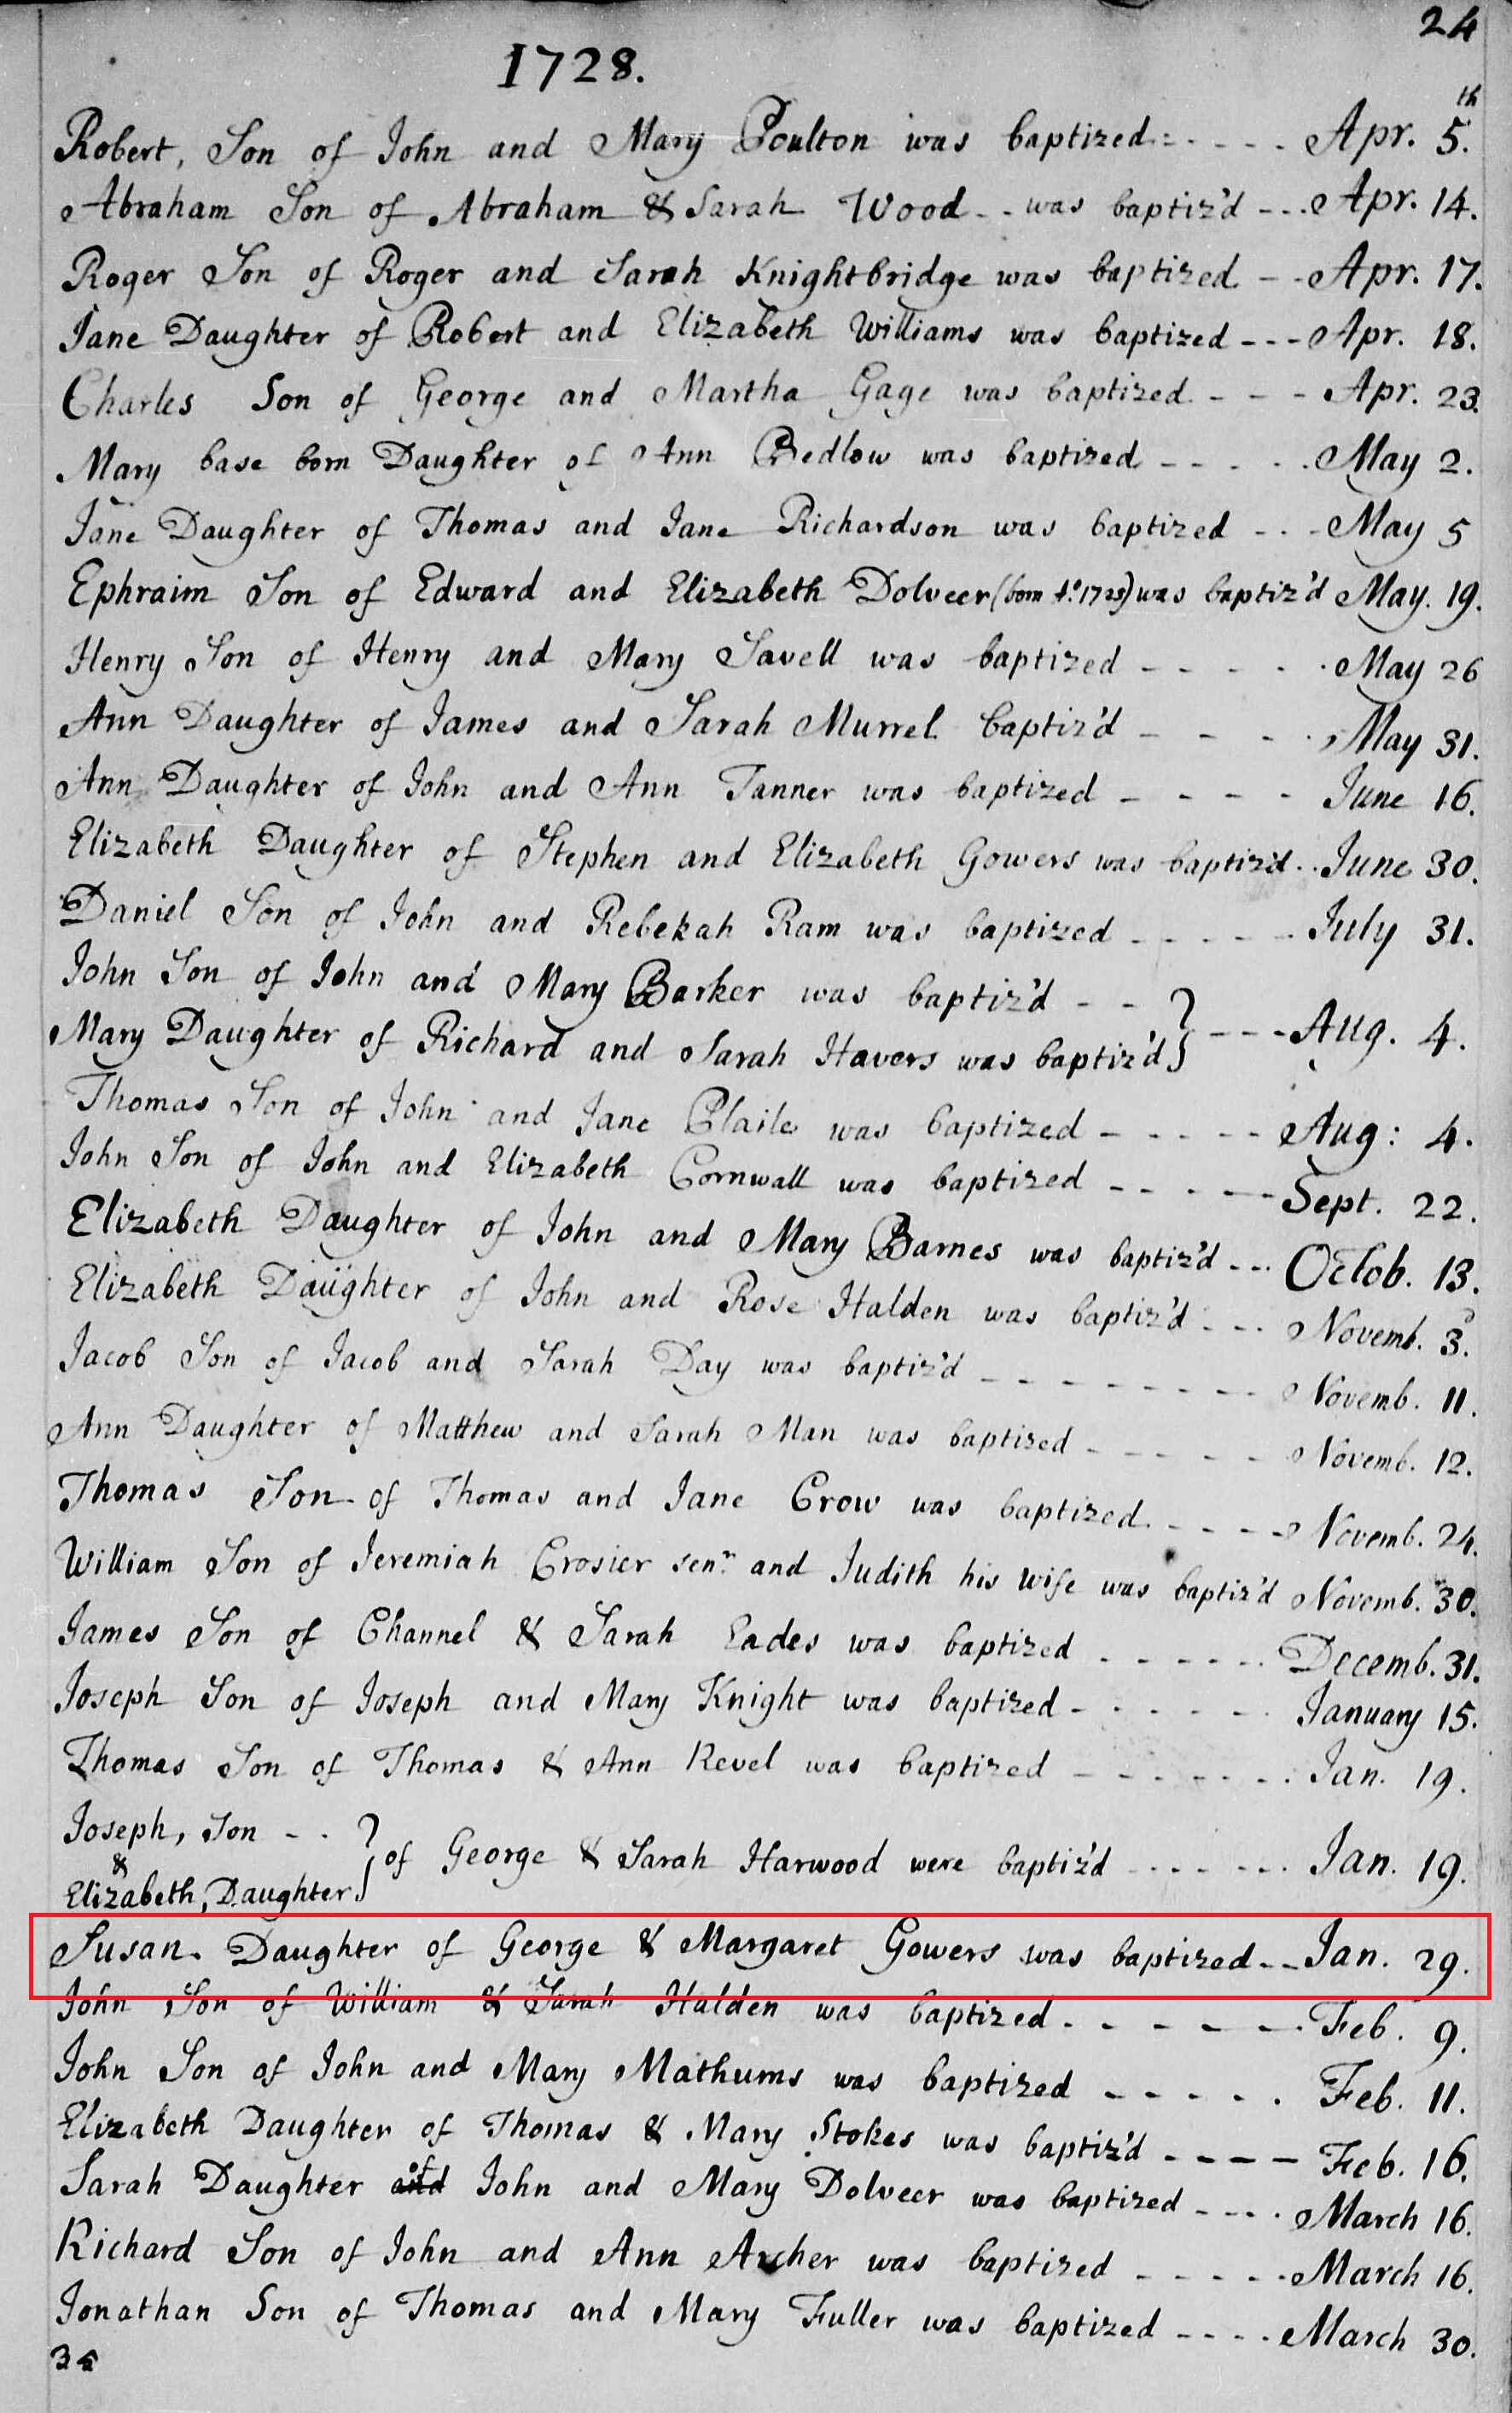 24
1728.
Robert, Son of John and Mary Poulton was baptized: - - - - Apr. 5th.
Abraham Son of Abraham & Sarah Wood - - was baptiz'd - - - Apr. 14.
Roger Son of Roger and Sarah Knightbridge was baptized - - Apr. 17.
Jane Daughter of Robert and Elizabeth Williams was baptized - - - Apr. 18.
Charles Son of George and Martha Gage was baptized - - - Apr. 23.
Mary base born Daughter of Ann Bedlow was baptized - - - - - May 2.
Jane Daughter of Thomas and Jane Richardson was baptized - - - May 5
Ephraim Son of Edward and Elizabeth Dolveer (born Ao. 1725) was baptiz'd May. 19.
Henry Son of Henry and Mary Savell was baptized - - - - - May 26
Ann Daughter of James and Sarah Murrel baptiz'd - - - - May 31.
Ann Daughter of John and Ann Tanner was baptized - - - - June 16.
Elizabeth Daughter of Stephen and Elizabeth Gowers was baptiz'd - - June 30.
Daniel Son of John and Rebekah Ram was baptized - - - - - July 31.
John Son of John and Mary Barker was baptiz'd - - }
Mary Daughter of Richard and Sarah Havers was baptiz'd } - - - Aug. 4.
Thomas Son of John and Jane Plaile was baptized - - - - - Aug: 4.
John Son of John and Elizabeth Cornwall was baptized - - - - - Sept. 22.
Elizabeth Daughter of John and Mary Barnes was baptiz'd - - - Octob. 13.
Elizabeth Daughter of John and Rose Halden was baptiz'd - - - Novemb. 3d.
Jacob Son of Jacob and Sarah Day was baptiz'd - - - - - - - Novemb. 11.
Ann Daughter of Matthew and Sarah Man was baptized - - - - - Novemb. 12.
Thomas Son of Thomas and Jane Crow was baptized - - - - Novemb. 24.
William Son of Jeremiah Crosier senr. and Judith his wife was baptiz'd Novemb. 30.
James Son of Channel & Sarah Eades was baptized - - - - - - Decemb. 31.
Joseph Son of Joseph and Mary Knight was baptized - - - - - January 15.
Thomas Son of Thomas & Ann Revel was baptized - - - - - - Jan. 19.
Joseph, Son - - }
& } of George & Sarah Harwood were baptiz'd - - - - - - Jan. 19.
Elizabeth, Daughter }
Susan Daughter of George & Margaret Gowers was baptized - - Jan. 29.
John Son of William & Sarah Halden was baptized - - - - - - Feb. 9.
John Son of John and Mary Mathums was baptized - - - - - Feb. 11.
Elizabeth Daughter of Thomas & Mary Stokes was baptiz'd - - - - Feb. 16.
Sarah Daughter and of John and Mary Dolveer was baptized - - - - March 16.
Richard Son of John and Ann Archer was baptized - - - - - March 16.
Jonathan Son of Thomas and Mary Fuller was baptized - - - - March 30.